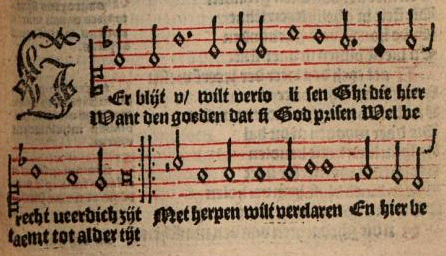 VErblijt v/ wilt verio li sen Ghi die hier
Want den goeden dat si God prisen Wel be
recht ueerdich zijt Met herpen wilt verclaren En hier be
taemt tot alder tijt